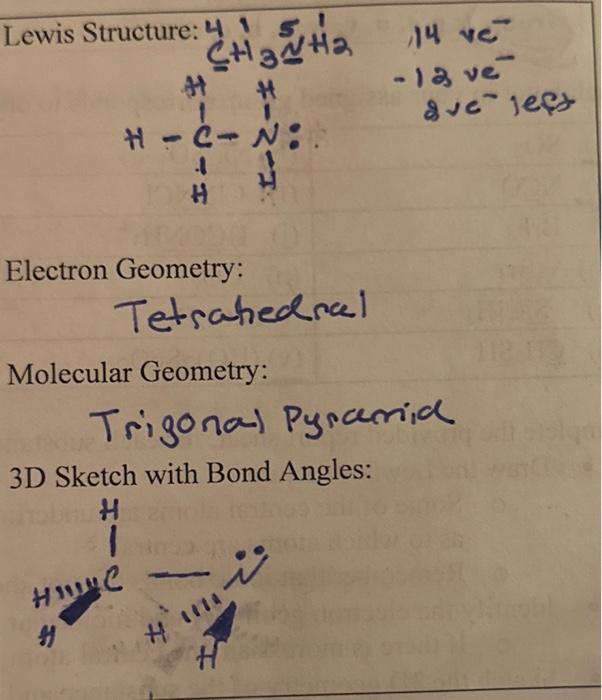 Lewis Structure: 4 1 5 1
CH3NH2
14 ve⁻
- 12 ve⁻
2 ve⁻ left
H H
H - C - N:
H H
Electron Geometry:
Tetrahedral
Molecular Geometry:
Trigonal Pyramid
3D Sketch with Bond Angles:
H
H C — N
H H
H